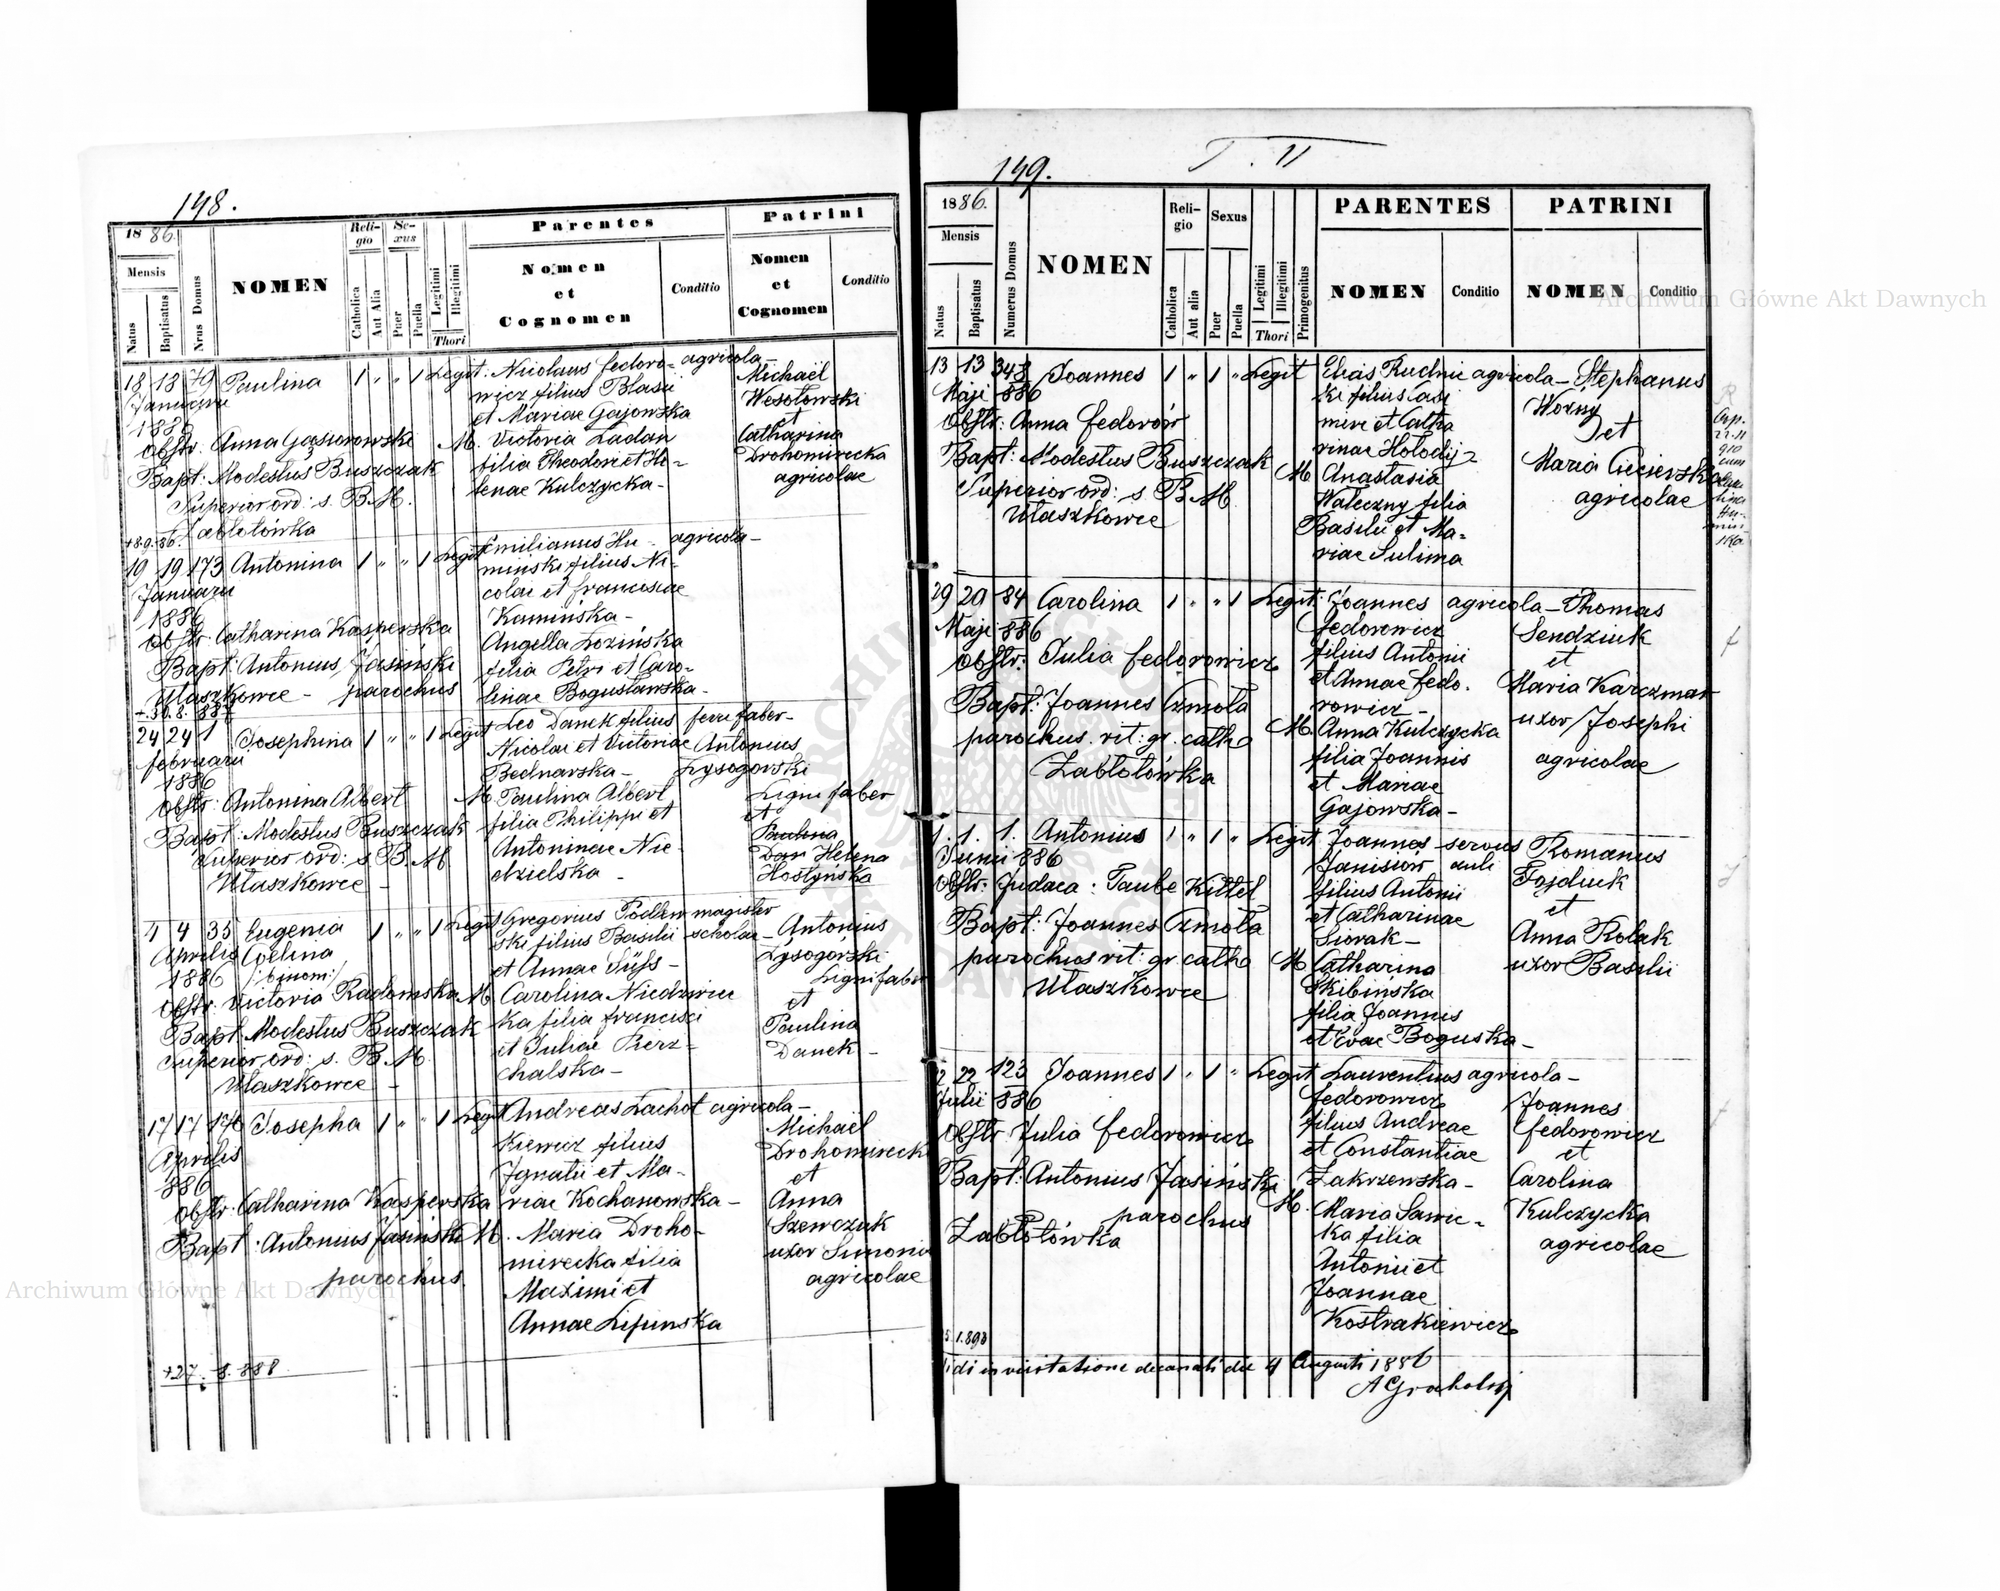 148.
18 86.
Mensis
Natus
Baptisatus
Nrus Domus
NOMEN
Reli-
gio
Catholica
Aut Alia
Se-
xus
Puer
Puella
Legitimi
Illegitimi
Thori
Parentes
Nomen
et
Cognomen
Conditio
Patrini
Nomen
et
Cognomen
Conditio
18 18 79 Paulina 1 " " 1 Legit: Nicolaus Fedoro- agricola-
Januarii
1886
wicz filius Blasii
et Mariae Gajowska
Michaël
Wesołowski
et
Obstr. Anna Gąsiorowski M. Victoria Ladan
Catharina
Bapt: Modestus Buszczak filia Theodori et He-
Drohomirecka
Superior ord: s. B. M. lenae Kulczycka-
agricolae
Zabłotówka
+8.9.86.
19 19 173 Antonina 1 " " 1 Legit Emilianus Hu- agricola-
Januarii
1886
miński filius Ni-
colai et Franciscae
Kamińska-
Obstr. Catharina Kasperska Angella Łozińska
Bapt: Antonius Jasiński filia Petri et Caro-
Ułaszkowce - parochus linae Bogusławska-
24 24 1 Josephina 1 " " 1 Legit Leo Danek filius ferri faber-
Februarii
1886
Nicolai et Victoriae Antonius
Bednarska- Łysogorski
Obstr: Antonina Albert M. Paulina Albert ligni faber
Bapt: Modestus Buszczak filia Philippi et
et
Superior ord: s. B. M. Antoninae Nie-
Paulina
Dan Helena
Ułaszkowce - dzielska -
Hostynska
4 4 35 Eugenia 1 " " 1 Legit Gregorius Podlew magister
Aprilis Coelina ski filius Basilii scholae- Antonius
1886 /:binom:/ et Annae Süss-
Łysogorski
ligni faber
Obstr. Victoria Radomska M. Carolina Niedzwiec
et
Bapt: Modestus Buszczak ka filia Francisci
Paulina
Superior ord: s. B. M. et Juliae Pierz-
Danek-
Ułaszkowce - chalska-
17 17 176 Josepha 1 " " 1 Legit Andreas Lachot agricola-
Aprilis
886
kiewicz filius
Ignatii et Ma-
Michaël
Drohomirecki
et
Obstr. Catharina Kasperska riae Kochanowska-
Anna
Bapt: Antonius Jasiński M. Maria Droho-
Szewczuk
parochus
mirecka filia
uxor Simonis
Maximi et
agricolae
Annae Lipinska
+27. 8. 888
149.
T. II
1886.
Mensis
Natus
Baptisatus
Numerus Domus
NOMEN
Reli-
gio
Catholica
Aut alia
Sexus
Puer
Puella
Legitimi
Illegitimi
Thori
Primogenitus
PARENTES
NOMEN
Conditio
PATRINI
NOMEN
Conditio
13 13 348 Joannes 1 " 1 " Legit Elias Rudnic agricola- Stephanus
Maji 886
ki filius Casi
Woxny
Obstr: Anna Fedorów
miri et Catha
et
Bapt: Modestus Buszczak
rinae Hołodij-
Maria Cicierska
Superior ord: s. B. M. M. Anastasia
agricolae
Ułaszkowce
Waleczny filia
Basilii et Ma-
riae Sulima
29 29 84 Carolina 1 " " 1 Legit: Joannes agricola- Thomas
Maji 886
Fedorowicz
Sendziuk
Obstr: Julia Fedorowicz
filius Antonii
et
et Annae Fedo-
Maria Karczmar
Bapt: Joannes Czmoła
rowicz-
parochus rit: gr. cath M. Anna Kulczycka
uxor Josephi
Zabłotówka
filia Joannis
agricolae
et Mariae
Gajowska-
1. 1. 1. Antonius 1 " 1 " Legit Joannes servus Romanus
Junii 886
Janisiów auli
Fojdiuk
Obstr: Judaea: Taube Kittel
filius Antonii
et
Bapt: Joannes Czmoła
et Catharinae
Anna Rolak
Siorak-
parochus rit: gr. cath M. Catharina
uxor Basilii
Ułaszkowce
Skibinska
filia Joannis
et Evae Boguska-
22 123 Joannes 1 " 1 " Legit Laurentius agricola-
Julii 886
Fedorowicz
Joannes
Obstr Julia Fedorowicz
filius Andreae
Fedorowicz
et Constantiae
et
Bapt: Antonius Jasiński
Zakrzewska-
Carolina
parochus
M. Maria Sawic-
Kulczycka
Zabłotówka
ka filia
agricolae
Antonii et
Joannae
Kostrakiewicz
1.890
Vidi in visitatione decanali die 4 Augusti 1886
Archiwum Główne Akt Dawnych
Archiwum Główne Akt Dawnych